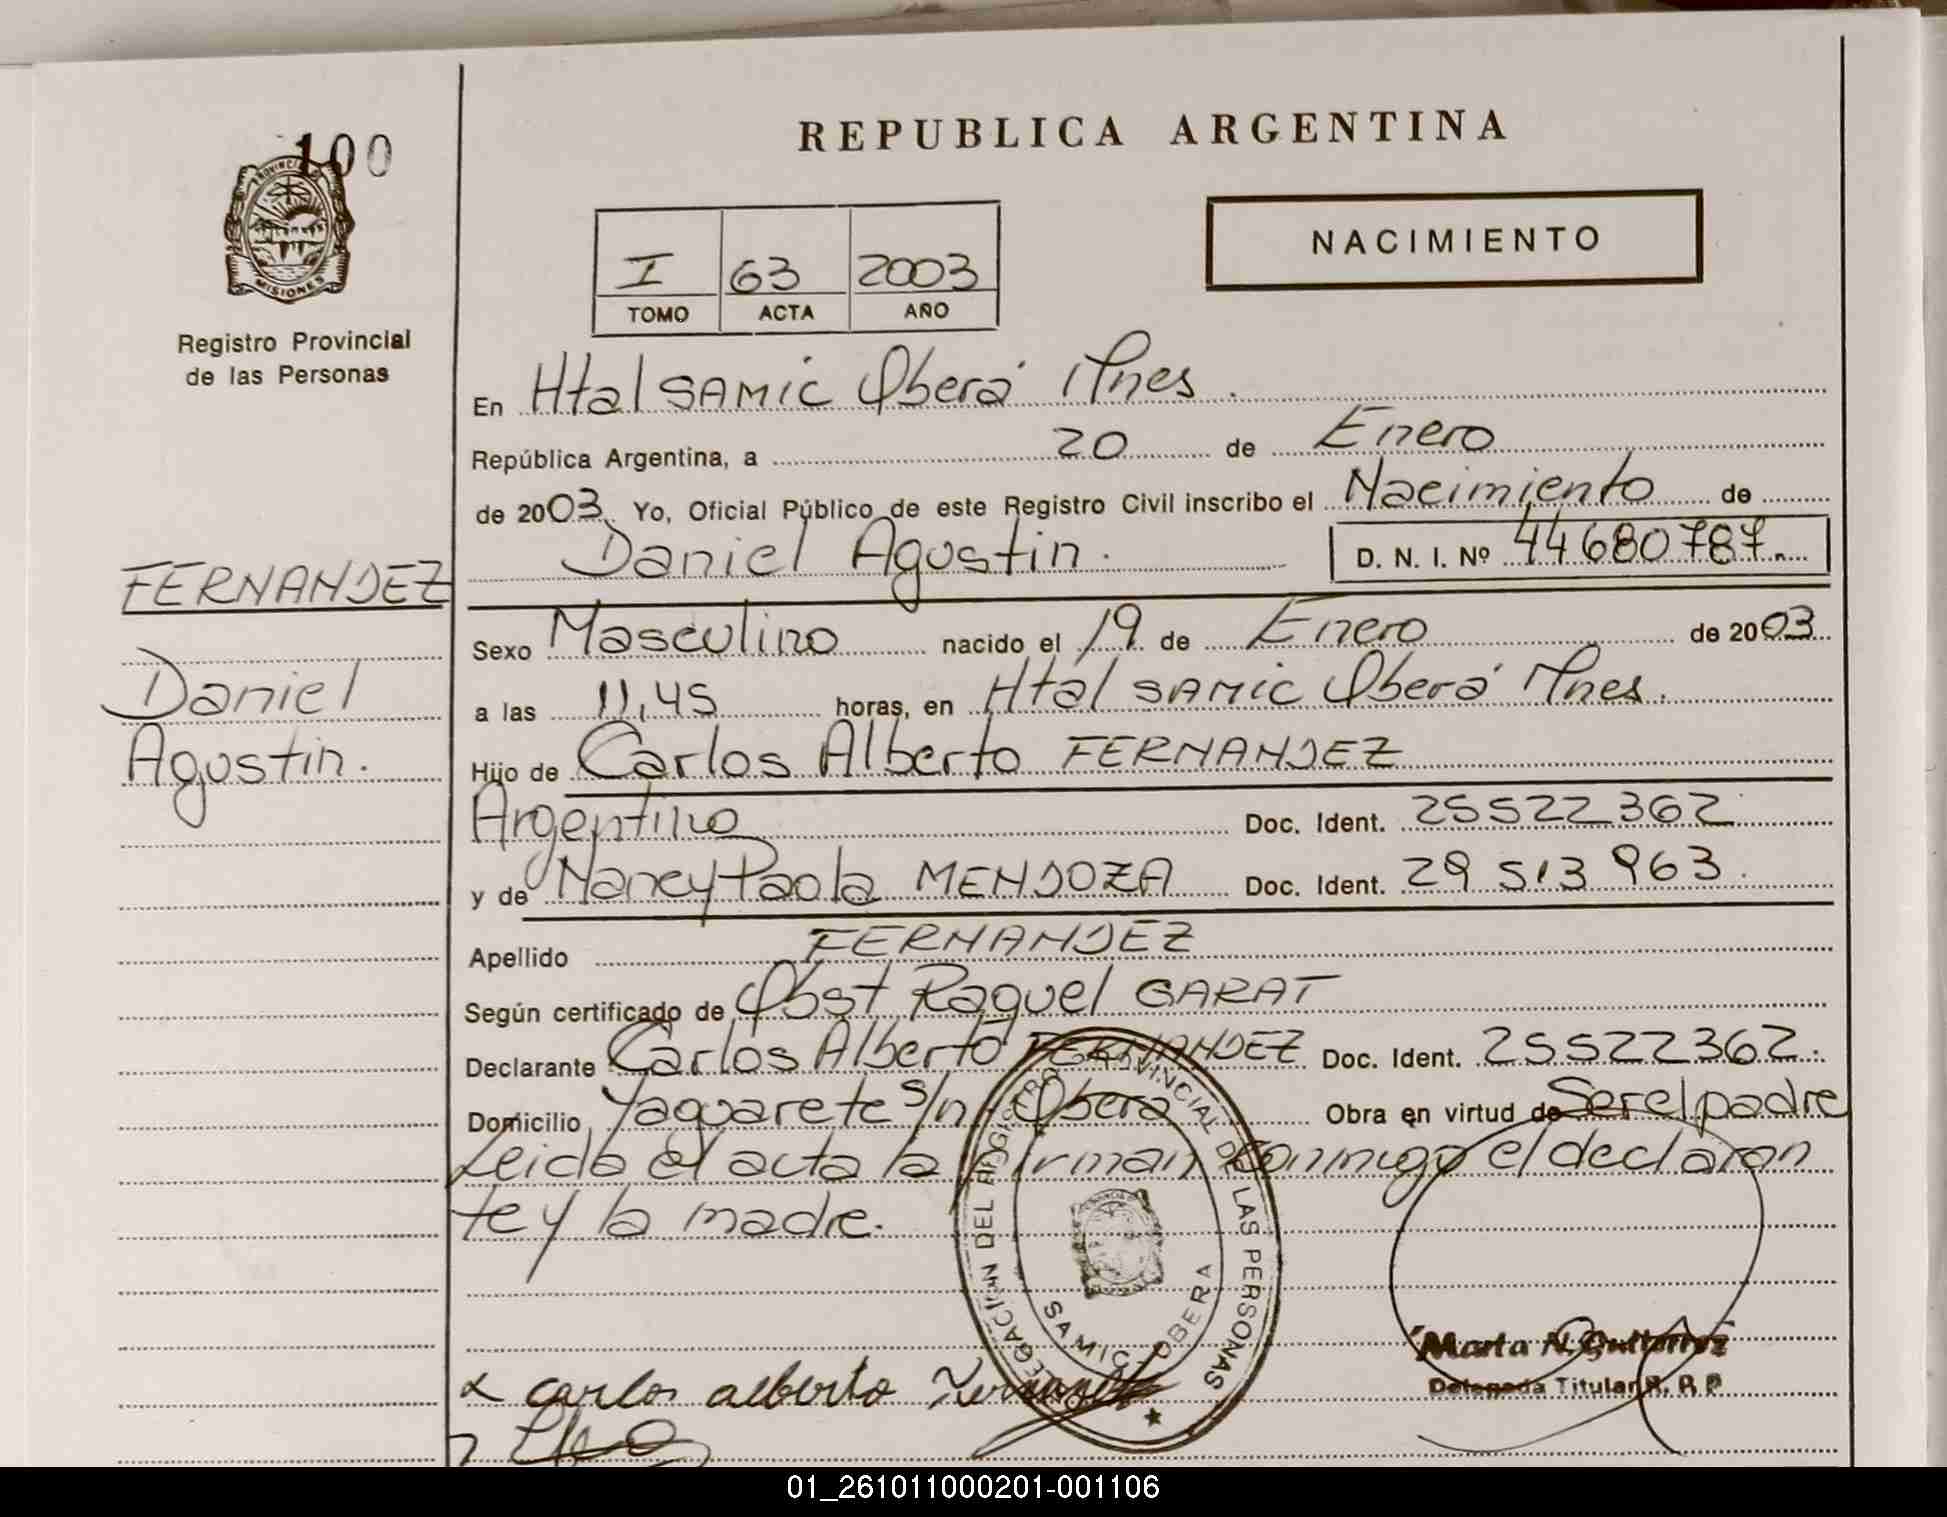 100
PROVINCIA
MISIONES
Registro Provincial
de las Personas
FERNANDEZ
Daniel
Agustin.
REPUBLICA ARGENTINA
I 63 2003
TOMO ACTA AÑO
NACIMIENTO
En Htal SAMIC Oberá Mnes.
República Argentina, a 20 de Enero
de 2003. Yo, Oficial Público de este Registro Civil inscribo el Nacimiento de
Daniel Agustin. D. N. I. Nº 44680787.
Sexo Masculino nacido el 19 de Enero de 2003
a las 11,45 horas, en Htal SAMIC Oberá Mnes.
Hijo de Carlos Alberto FERNANDEZ
Argentino Doc. Ident. 25522362
y de Nancy Paola MENDOZA Doc. Ident. 29 513 963.
Apellido FERNANDEZ
Según certificado de Obst Raquel GARAT
Declarante Carlos Alberto FERNANDEZ Doc. Ident. 25522362.
Domicilio Yaguarete s/n Obera Obra en virtud de Ser el padre
Leida el acta la firman conmigo el declaran
te y la madre.
DELEGACION DEL REGISTRO PROVINCIAL DE LAS PERSONAS
SAMIC - OBERA
carlos alberto Fernandez
Marta N. Gutierrez
Delegada Titular R. P. P.
01_261011000201-001106